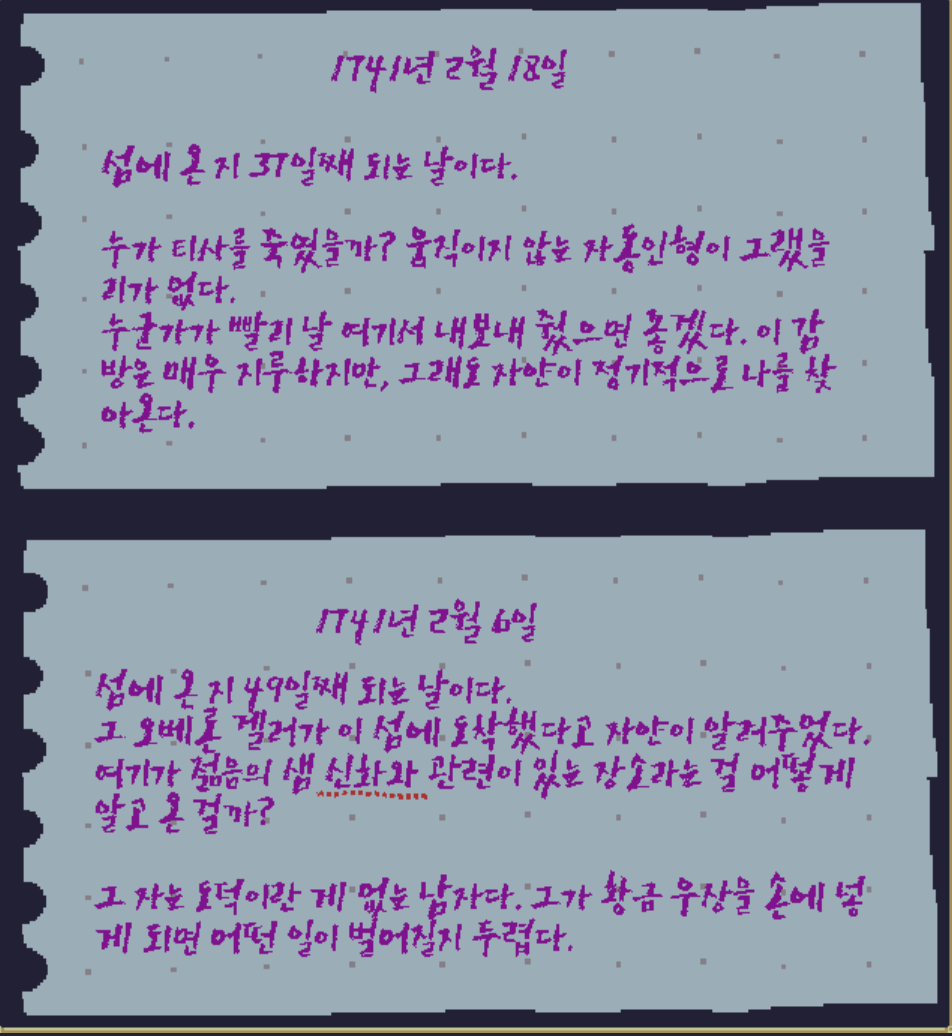 1741년 2월 18일
섬에 온 지 37일째 되는 날이다.
누가 티사를 죽였을까? 움직이지 않는 자동인형이 그랬을
리가 없다.
누군가가 빨리 날 여기서 내보내 줬으면 좋겠다. 이 감
방은 매우 지루하지만, 그래도 자얀이 정기적으로 나를 찾
아온다.
1741년 2월 6일
섬에 온 지 49일째 되는 날이다.
그 오베론 겔러가 이 섬에 도착했다고 자얀이 알려주었다.
여기가 젊음의 샘 신화와 관련이 있는 장소라는 걸 어떻게
알고 온 걸까?
그 자는 도덕이란 게 없는 남자다. 그가 황금 우상을 손에 넣
게 되면 어떤 일이 벌어질지 두렵다.